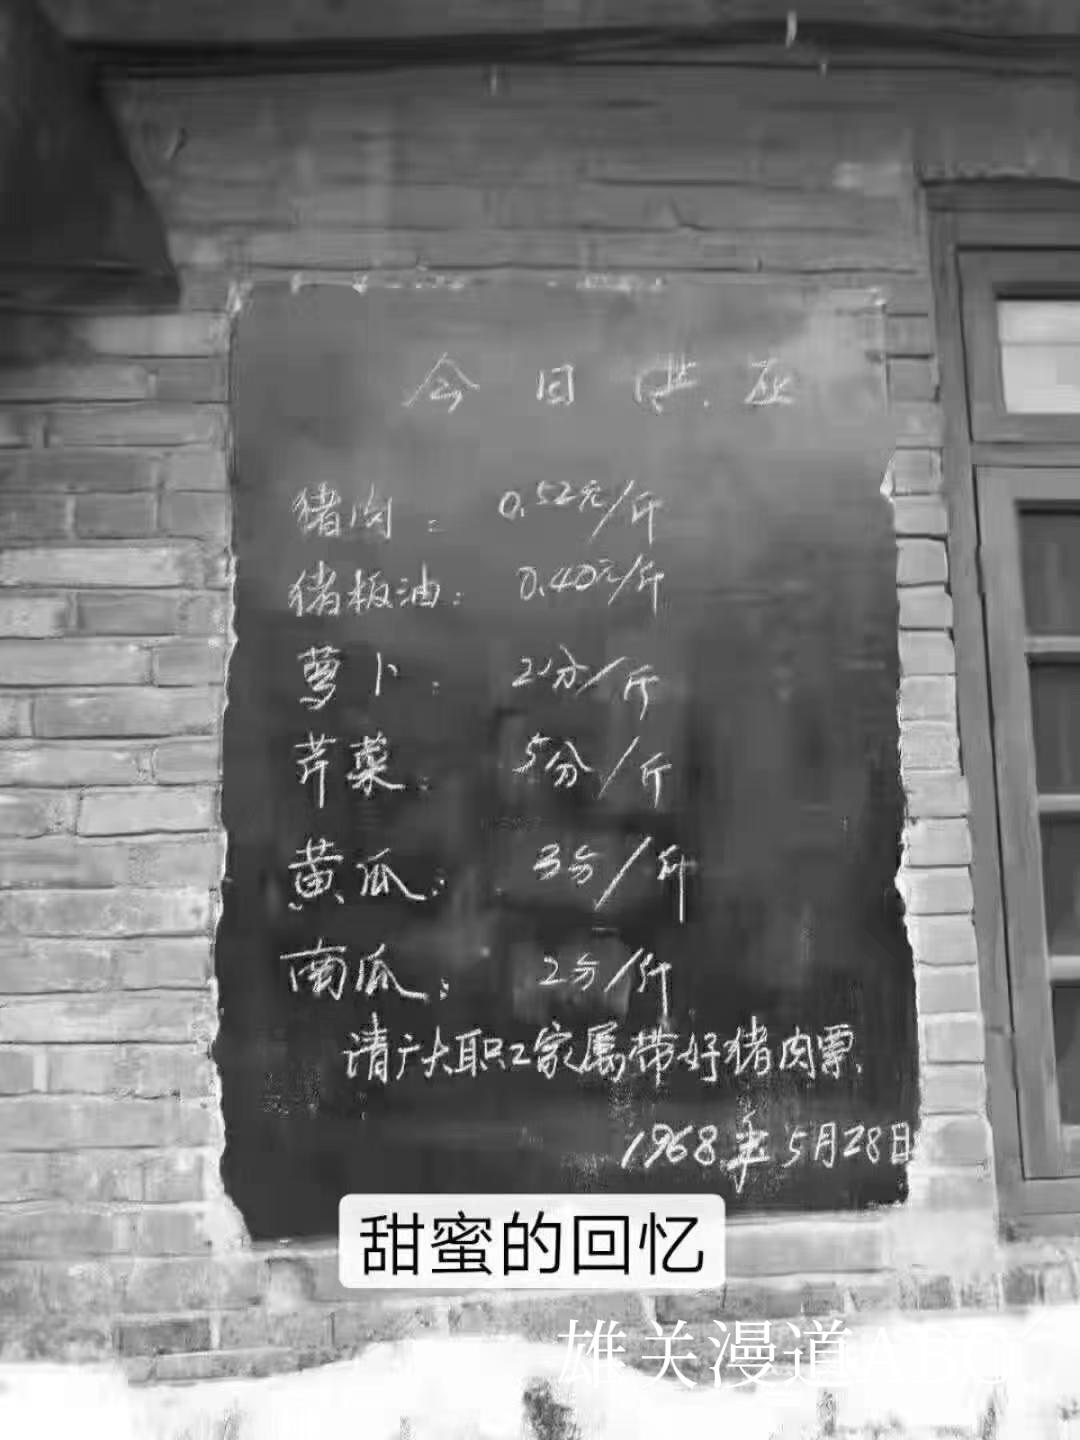 今日供应
猪肉：0.52元/斤
猪板油：0.40元/斤
萝卜：2分/斤
芹菜：5分/斤
黄瓜：3分/斤
南瓜：2分/斤
请广大职工家属带好猪肉票
1968年5月28日
甜蜜的回忆
雄关漫道ABC